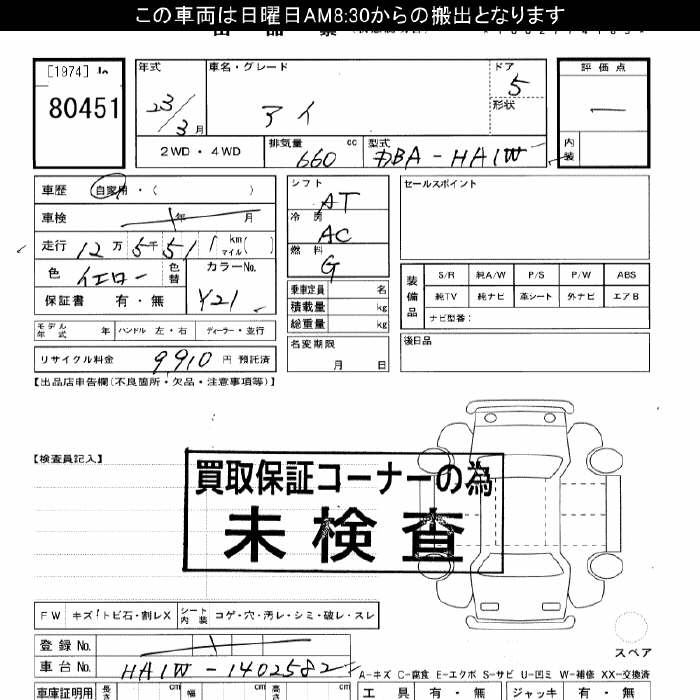 この車両は日曜日AM8:30からの搬出となります
[1974]
80451
年式
23/3月
車名・グレード
アイ
ドア
5
形状
評価点
一
内装
2WD・4WD
排気量
660 cc
型式
DBA-HA1W
車歴 自家用・( )
車検 年 月
走行 12万5千51 km マイル( )
色 イエロー 色替
カラーNo.
Y21
保証書 有・無
モデル年式 年 ハンドル 左・右 ディーラー・並行
リサイクル料金 9,910 円 預託済
シフト
AT
冷房
AC
燃料
G
乗車定員 名
積載量 kg
総重量 kg
名変期限
月 日
セールスポイント
装備品
S/R 純A/W P/S P/W ABS
純TV 純ナビ 革シート 外ナビ エアB
ナビ型番:
後日品
【出品店申告欄(不良箇所・欠品・注意事項等)】
【検査員記入】
買取保証コーナーの為
未検査
FW キズ!トビ石・割レX シート内装 コゲ・穴・汚レ・シミ・破レ・スレ
スペア
登録No.
車台No. HA1W-1402582
A-キズ C-腐食 E-エクボ S-サビ U-凹ミ W-補修 XX-交換済
車庫証明用 長さ cm 幅 cm 高さ cm
工具 有・無 ジャッキ 有・無